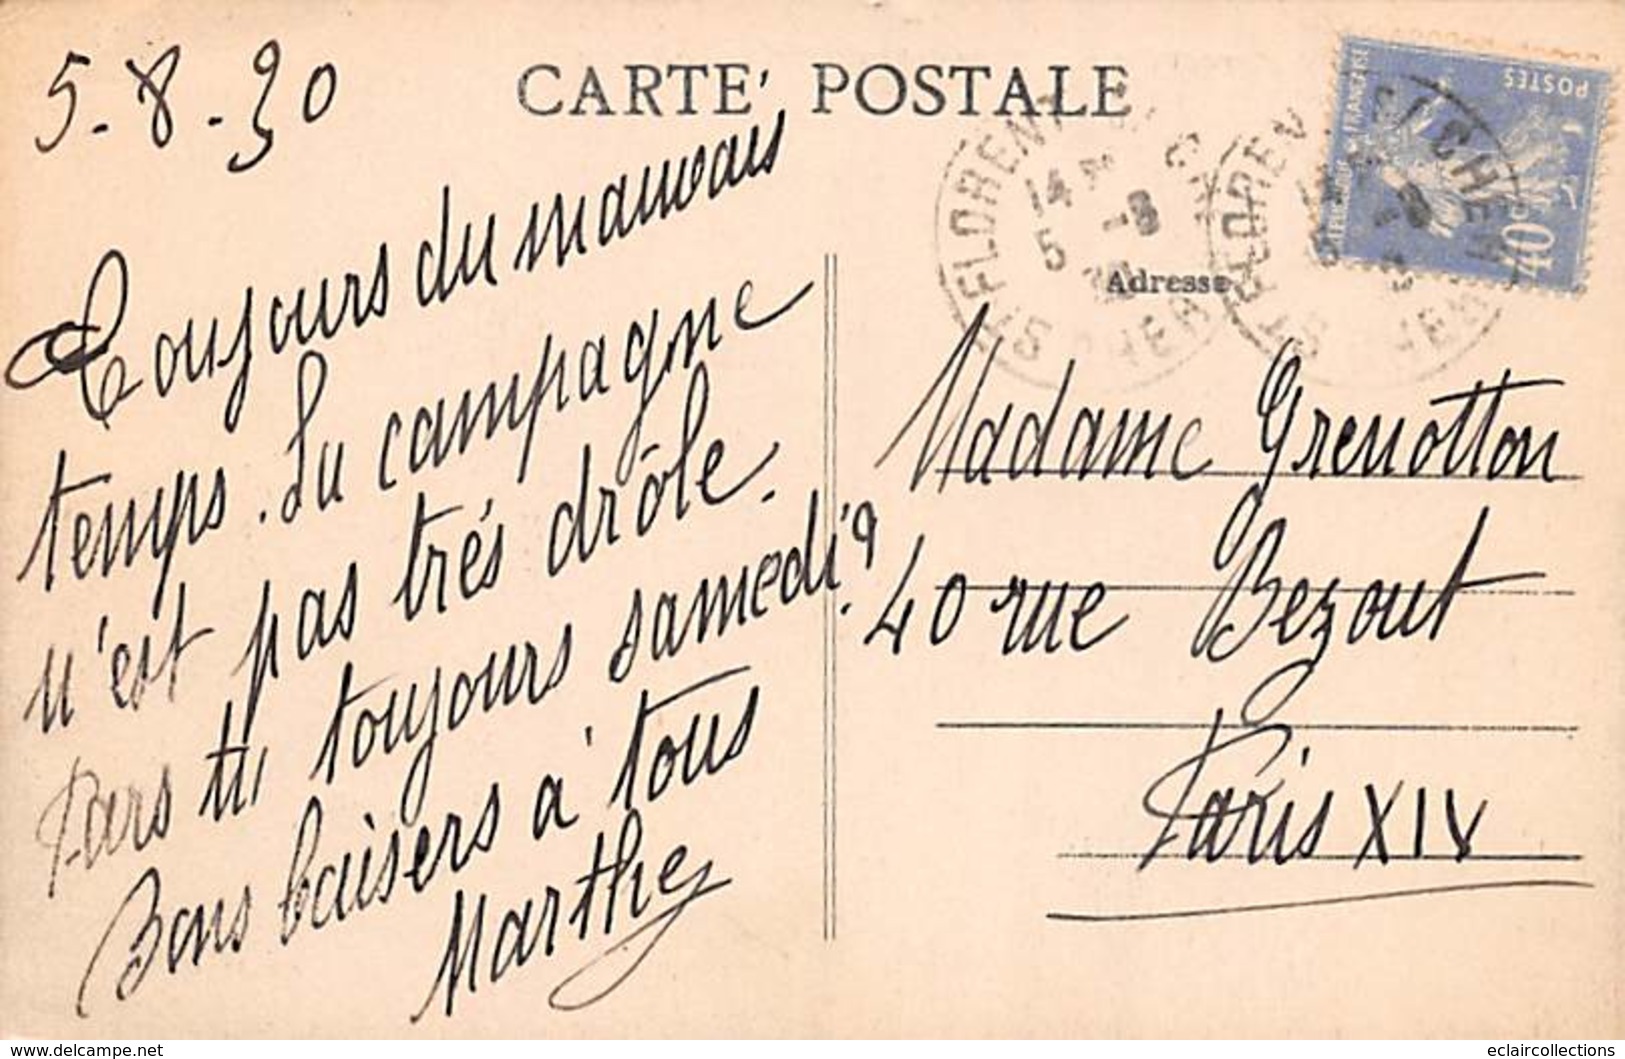 5-8-30
CARTE POSTALE
Toujours du mauvais
temps. La campagne
n'est pas très drôle.
Pars tu toujours samedi?
Bons baisers à tous
Marthe
POSTES
40c
ST FLORENT S/ CHER
14
5 -8
30
CHER
ST FLORENT S/ CHER
-8
CHER
Adresse
Madame Grenotton
40 rue Bezout
Paris XIV
www.delcampe.net
eclaircollections